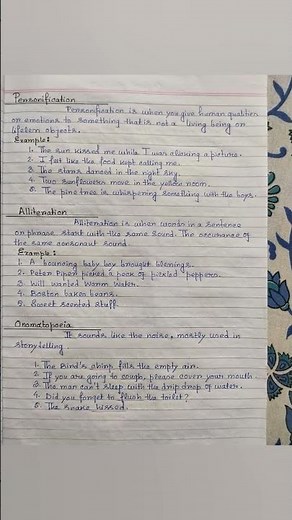 Personification
Personification is when you give human qualities
or emotions to something that is not a living being or
lifeless objects.
Example:
1. The sun kissed me while I was clicking a picture.
2. I felt like the food kept calling me.
3. The stars danced in the night sky.
4. Two sunflowers move in the yellow room.
5. The pine tree is whispering something with the boys.
Alliteration
Alliteration is when words in a sentence
or phrase start with the same sound. The occurance of
the same consonant sound.
Example:
1. A bouncing baby boy brought blessings.
2. Peter Piper picked a peck of pickled peppers.
3. Will wanted Warm Water.
4. Boston baken beans.
5. Sweet scented stuff.
Onomatopoeia
It sounds like the noise, mostly used in
story telling
1. The Bird's chirp fills the empty air.
2. If you are going to cough, please cover your mouth.
3. The man can't sleep with the drip drop of water.
4. Did you forget to flush the toilet?
5. The snake hissed.